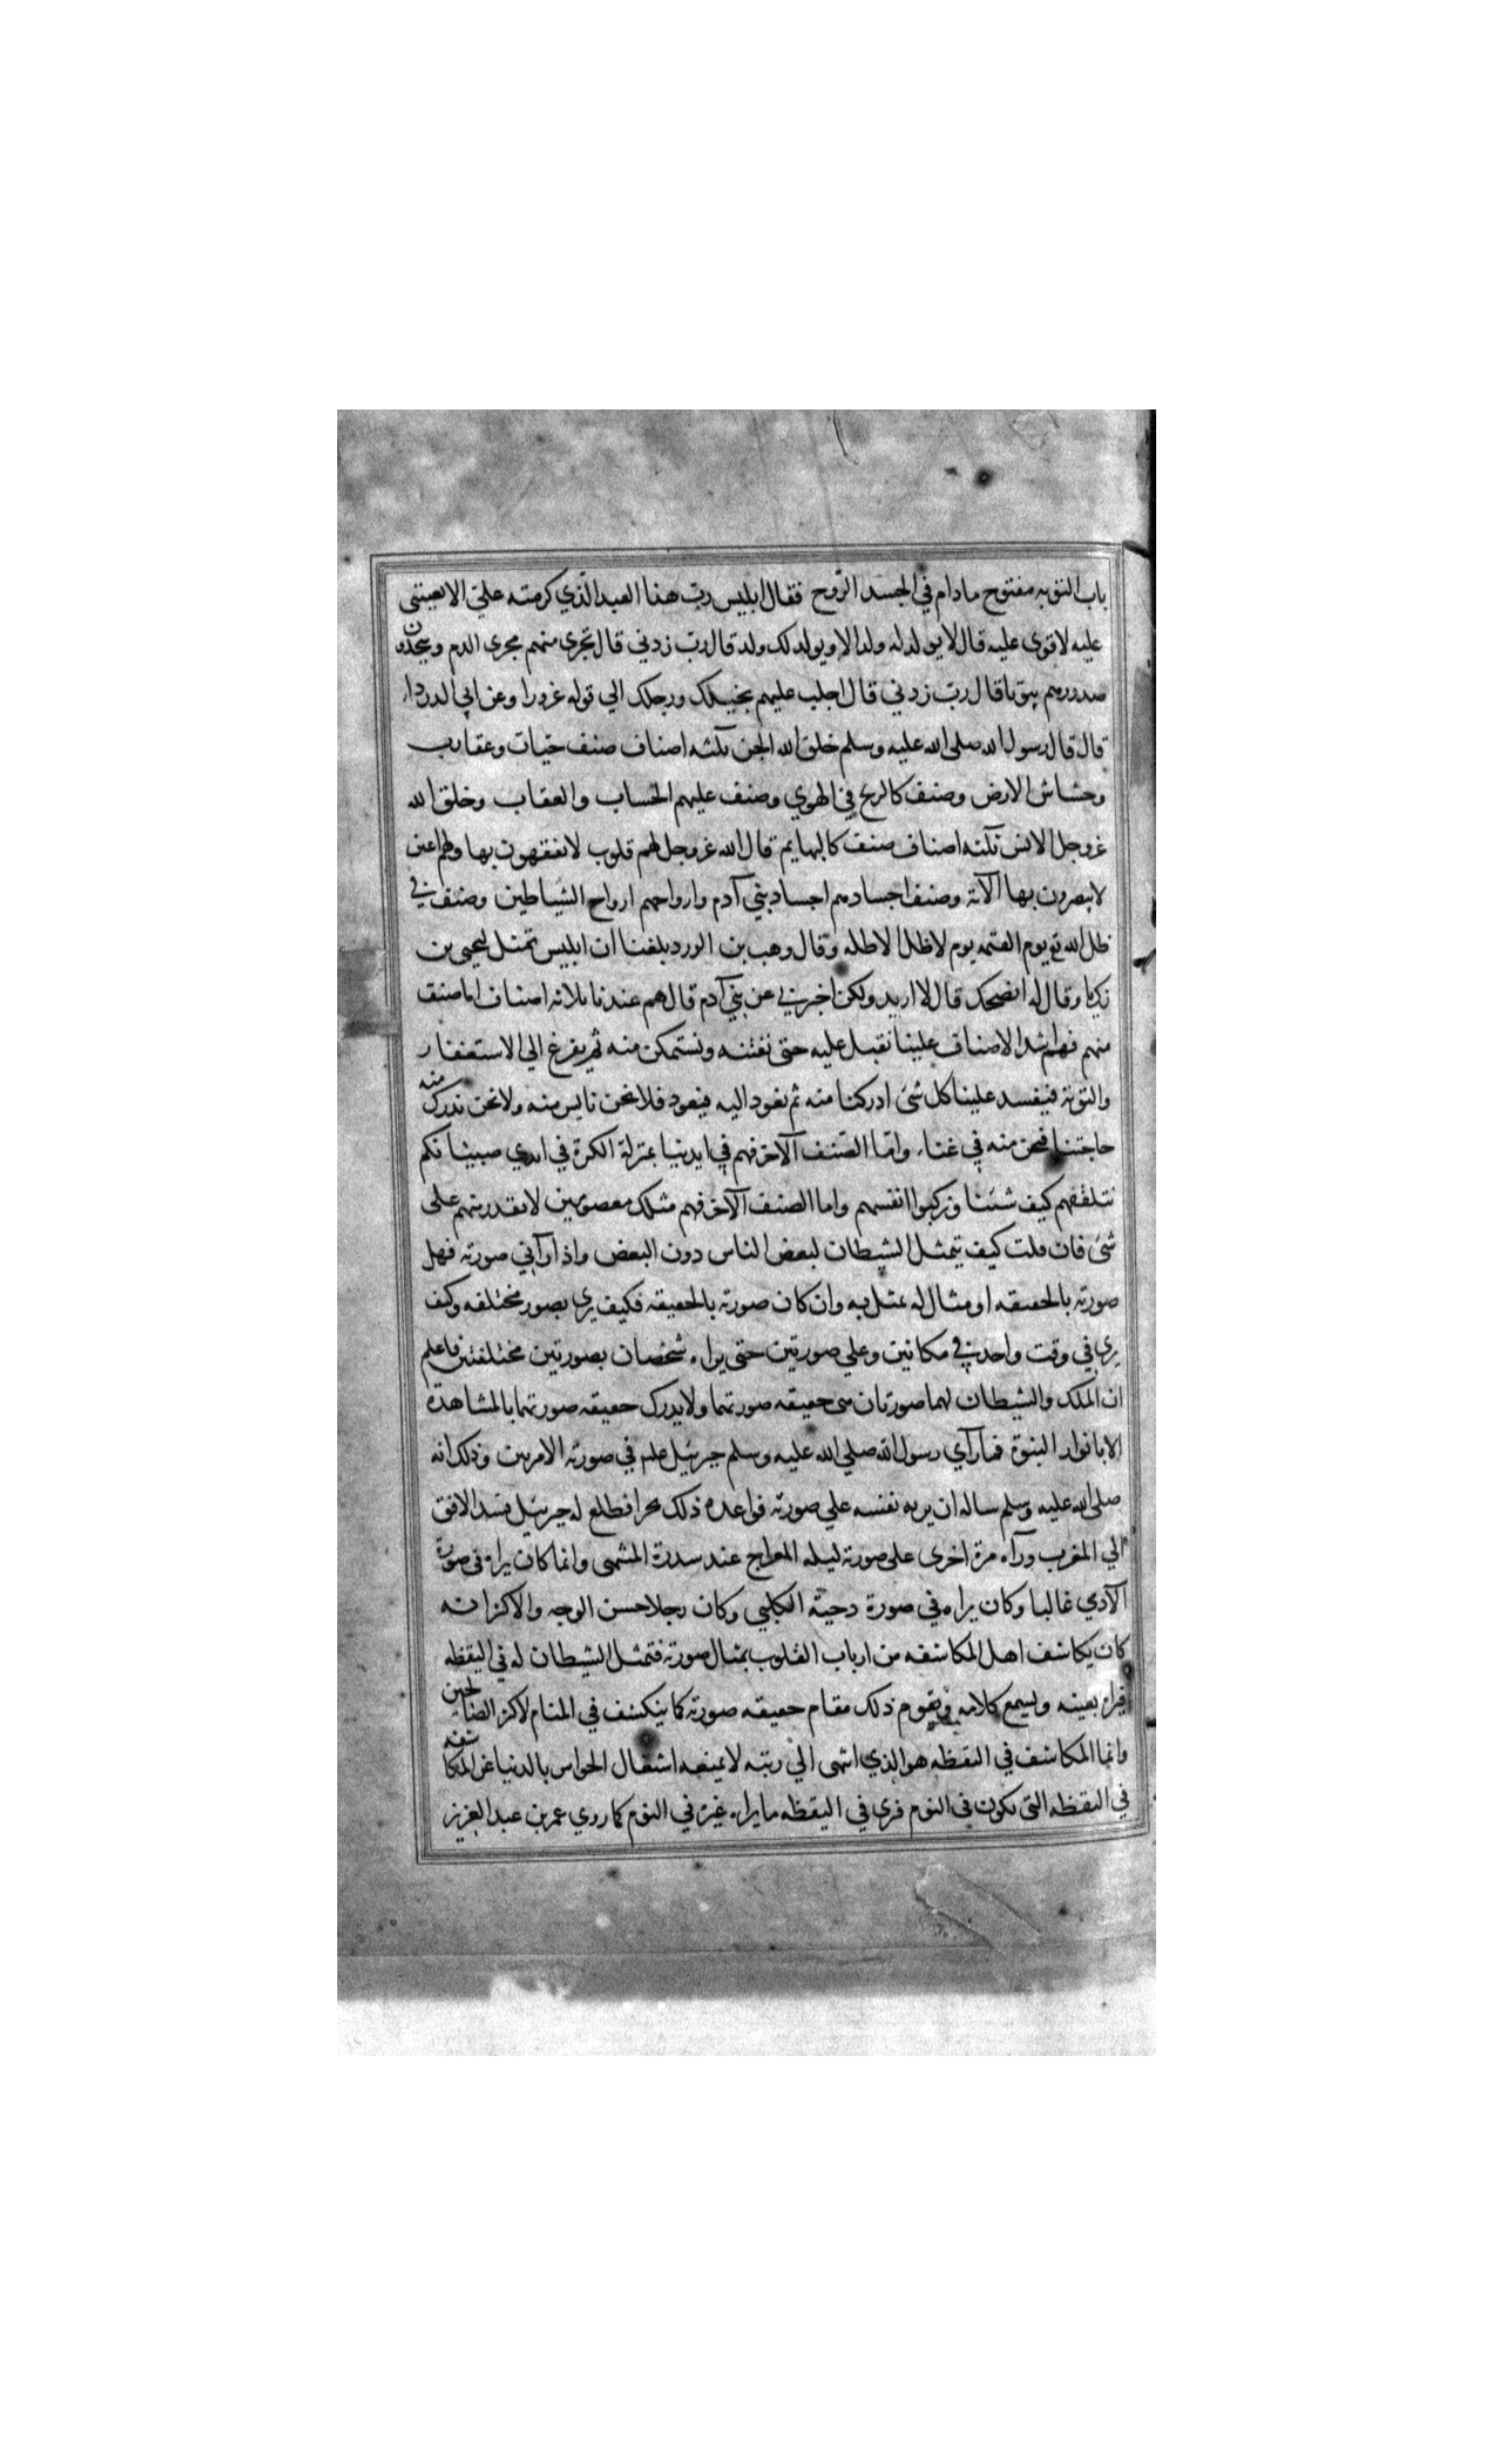 باب التوبه مفتوح مادام في الجسد الروح فقال ابليس رب هذا العبد الذي كرمته علي الا تعينني
عليه لا قوي عليه قال لا يولد له ولد الا ويولد لك ولد قال رب زدني قال تجرى منهم مجرى الدم ويتخذون
صدورهم بيوتا قال رب زدني قال اجلب عليهم بخيلك ورجلك الي قوله غرورا وعن ابي الدرداء
قال قال رسول الله صلى الله عليه وسلم خلق الله الجن ثلثه اصناف صنف حيات وعقارب
وخشاش الارض وصنف كالريح في الهوي وصنف عليهم الحساب والعقاب وخلق الله
عزوجل الانس ثلثه اصناف صنف كالبهايم قال الله عزوجل لهم قلوب لا يفقهون بها ولهم اعين
لا يبصرون بها الآية وصنف اجسادهم اجساد بني آدم وارواحهم ارواح الشياطين وصنف في
ظل الله تع يوم القيمه يوم لا ظل الا ظله وقال وهب بن الورد بلغنا ان ابليس تمثل ليحيي بن
زكريا وقال له انصحك قال لا اريد ولكن اخبرني عن بني آدم قال هم عندنا ثلاثه اصناف اما صنف
منهم فهم اشد الاصناف علينا نقبل عليه حتى نفتنه ونستمكن منه ثم يفزغ الي الاستغفار
والتوبة فيفسد علينا كل شئ ادركنا منه ثم نعود اليه فيعود فلا نحن نايس منه ولا نحن ندرك منه
حاجتنا فنحن منه في غناء واما الصنف الآخر فهم في ايدينا بمنزلة الكرة في ايدي صبيانكم
نتلقفهم كيف شئنا وركبوا انفسهم واما الصنف الآخر فهم مثلك معصومين لا نقدر منهم على
شئ فان قلت كيف يتمثل الشيطان لبعض الناس دون البعض واذا رآني صورته فهل
صورته بالحقيقه او مثال له يمثل به وان كان صورته بالحقيقه فكيف يري بصور مختلفه وكيف
يري في وقت واحد في مكانين وعلي صورتين حتى يراه شخصان بصورتين مختلفتين فاعلم
ان الملك والشيطان لهما صورتان هي حقيقه صورتهما ولا يدرك حقيقه صورتهما بالمشاهدة
الا بانوار النبوة فما رآي رسول الله صلي الله عليه وسلم جبرئيل علم في صورته الا مرتين وذلك انه
صلى الله عليه وسلم ساله ان يريه نفسه علي صورته فواعده ذلك بحرا فطلع له جبرئيل فسد الافق
الي المغرب ورآه مرة اخرى على صورته ليله المعراج عند سدرة المنتهى وانما كان يراه في صورة
الآدمي غالبا وكان يراه في صورة دحية الكلبي وكان رجلا حسن الوجه والاكثر انه
كان يكاشف اهل المكاشفه من ارباب القلوب بمثال صورته فتمثل الشيطان له في اليقظه
فيراه بعينه ويسمع كلامه ويقوم ذلك مقام حقيقه صورته كما ينكشف في المنام لاكثر الصالحين
وانما المكاشف في اليقظه هو الذي انتهى الي رتبه لا يمنعه اشتغال الحواس بالدنيا عن المكاشفه
في اليقظه التي تكون في النوم فرى في اليقظه ما يراه غيره في النوم كما روي عمر بن عبد العزيز